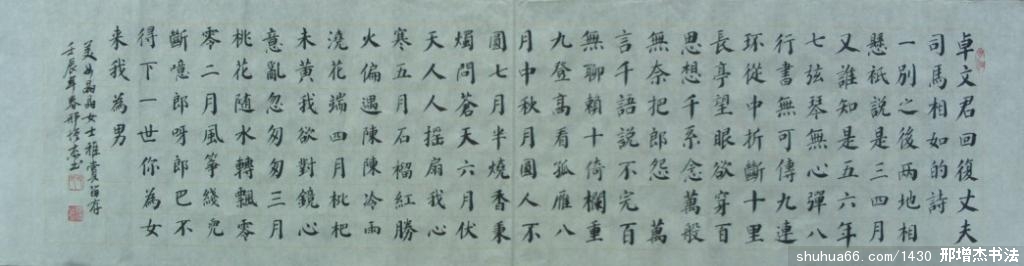 卓文君回復丈夫
司馬相如的詩
一別之後兩地相
懸祇説是三四月
又誰知是五六年
七弦琴無心彈八
行書無可傳九連
环從中折斷十里
長亭望眼欲穿百
思想千系念萬般
無奈把郎怨 萬
言千語說不完百
無聊賴十倚欄重
九登高看孤雁八
月中秋月圓人不
圓七月半燒香秉
燭問蒼天六月伏
天人人摇扇我心
寒五月石榴紅勝
火偏遇陳陳冷雨
澆花端四月枇杷
未黄我欲對鏡心
意亂忽匆匆三月
桃花随水轉飄零
零二月風筝綫兒
斷噫郎呀郎巴不
得下一世你為女
来我為男
女士雅賞留存
壬辰年春邢增杰書
shuhua66.com/1430 邢增杰书法